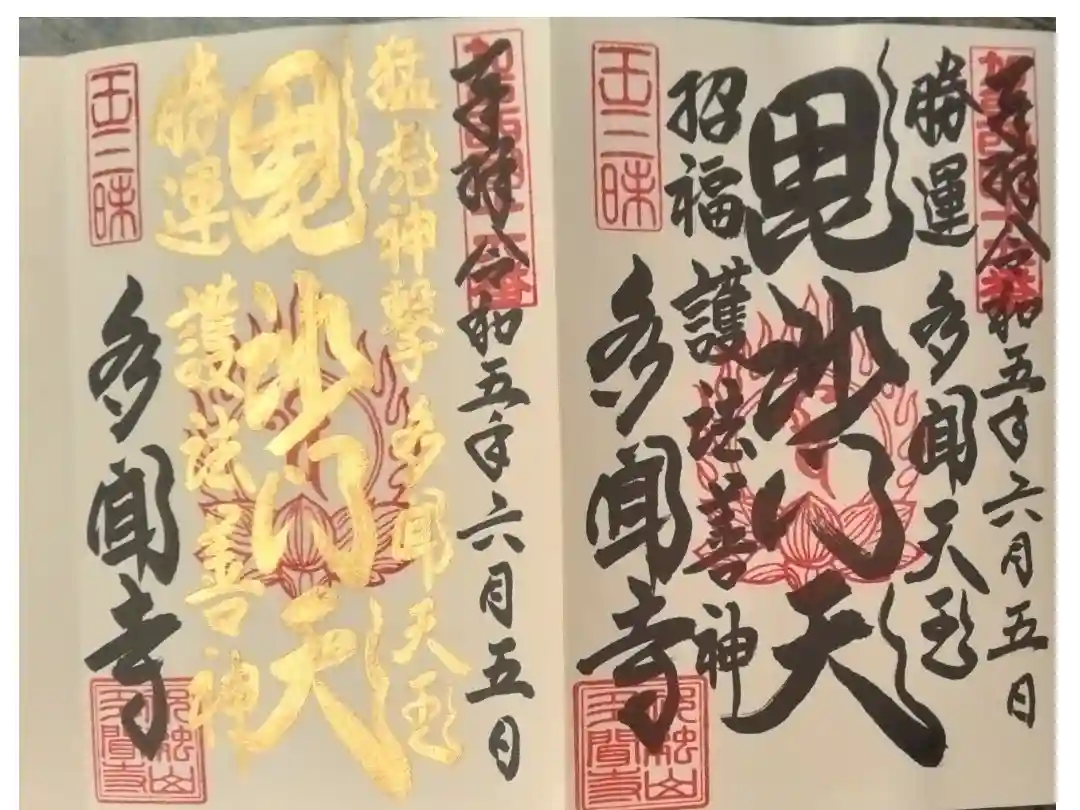 奉拝 令和五年六月五日
勝運 多聞天王
毘沙門天
招福 護法善神
多聞寺
五三昧
奉拝 令和五年六月五日
猛虎神撃 多聞天王
毘沙門天
勝運 護法善神
多聞寺
五三昧